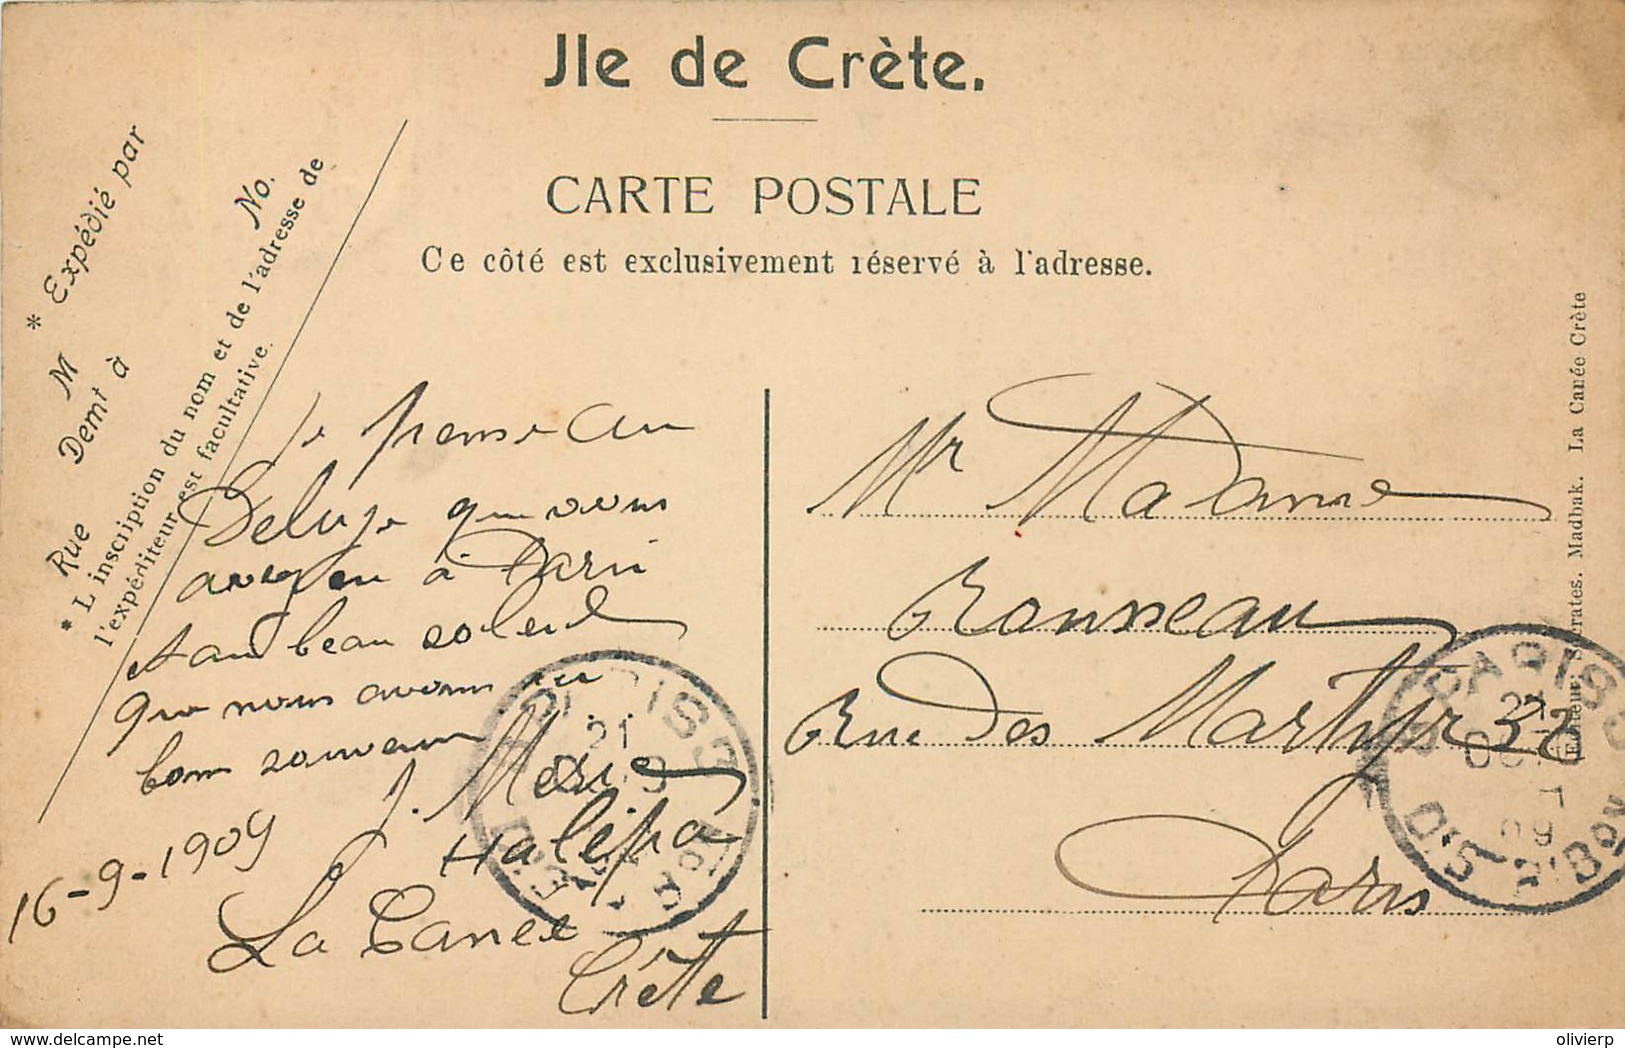 Ile de Crète.
CARTE POSTALE
Ce côté est exclusivement réservé à l'adresse.
* Expédié par
M
No.
Demt à
Rue
* L inscription du nom et de l'adresse de
l'expéditeur est facultative.
Je pense au
Deluge que vous
avez eu à Paris
et au beau soleil
que nous avons ici
bons souvenirs
J. Meri
16-9-1909
Halépa
La Canée
Crète
Mr Madame
Rousseau
Rue des Martyr 32
Paris
Editeur: Socrates. Madbak. La Canée Crète
PARIS
21
PARIS
21
OCT
09
olivierp